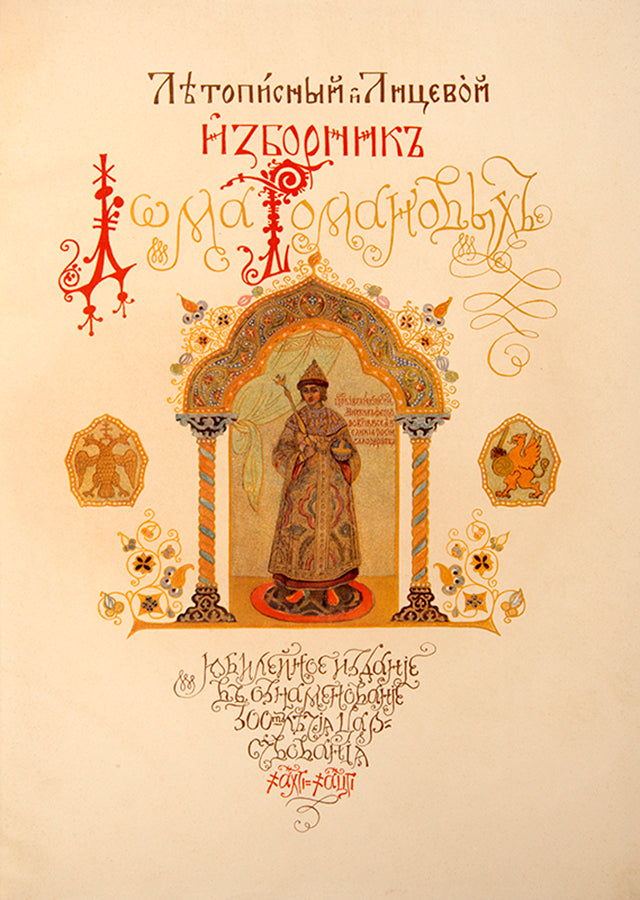 Лѣтопи́сный и҆ Лицево́й
И҆зборникъ
Дѡма Романовыхъ
Юбилейное изданіе
въ ознаменованіе
300тъ лѣтія цар-
ствованія
҂аХГІ = ҂аЦГІ